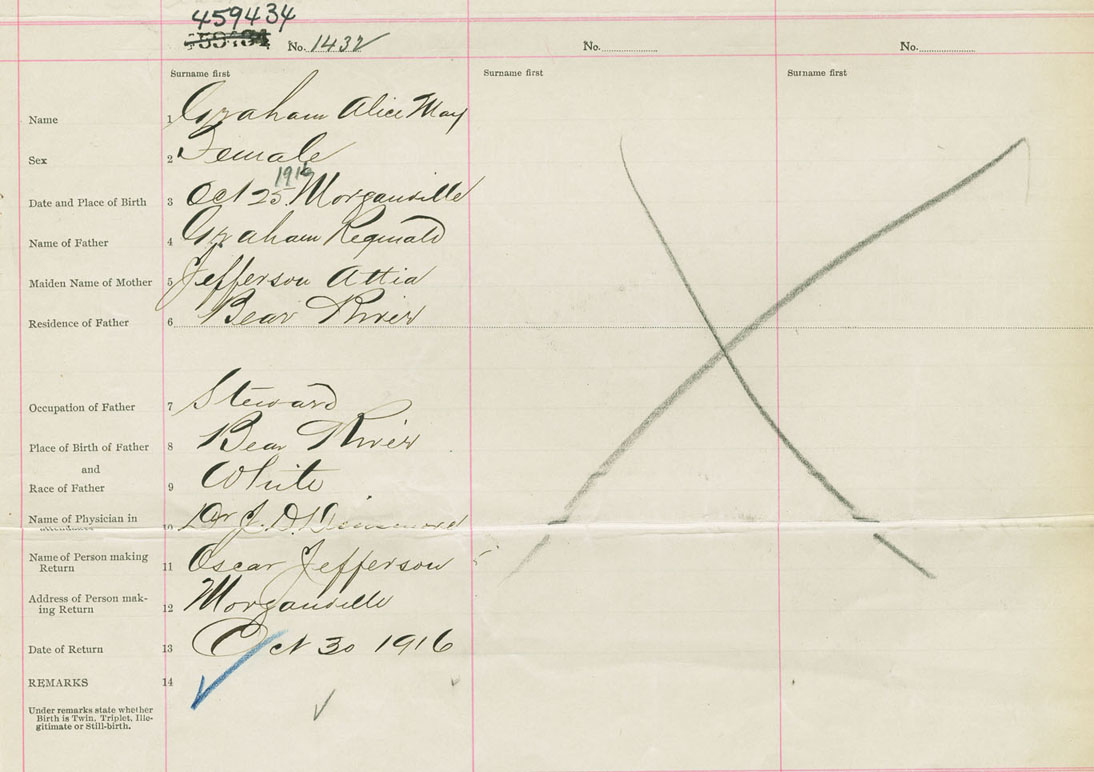 459434
No. 1432 No. No.
Surname first Surname first Surname first
Name 1 Graham Alice May
Sex 2 Female
1916
Date and Place of Birth 3 Oct 25. Morganville
Name of Father 4 Graham Reginald
Maiden Name of Mother 5 Jefferson Attia
Residence of Father 6 Bear River
Occupation of Father 7 Steward
Place of Birth of Father 8 Bear River
and
Race of Father 9 White
Name of Physician in 10 Dr J. D.
attendance
Name of Person making 11 Oscar Jefferson
Return
Address of Person mak- 12 Morganville
ing Return
Date of Return 13 Oct 30 1916
REMARKS 14
Under remarks state whether
Birth is Twin, Triplet, Ille-
gitimate or Still-birth.